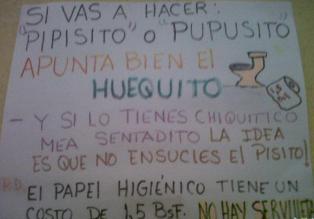 SI VAS A HACER:
"PIPISITO" o "PUPUSITO"
APUNTA BIEN El
HUEQUITO
- Y SI LO TIENES CHIQUITICO
MEA SENTADITO LA IDEA
ES QUE NO ENSUCIES EL PISITO!
P.D. El PAPEL HIGIÉNICO TIENE UN
COSTO DE 1,5 BsF. NO HAY SERVILLETA